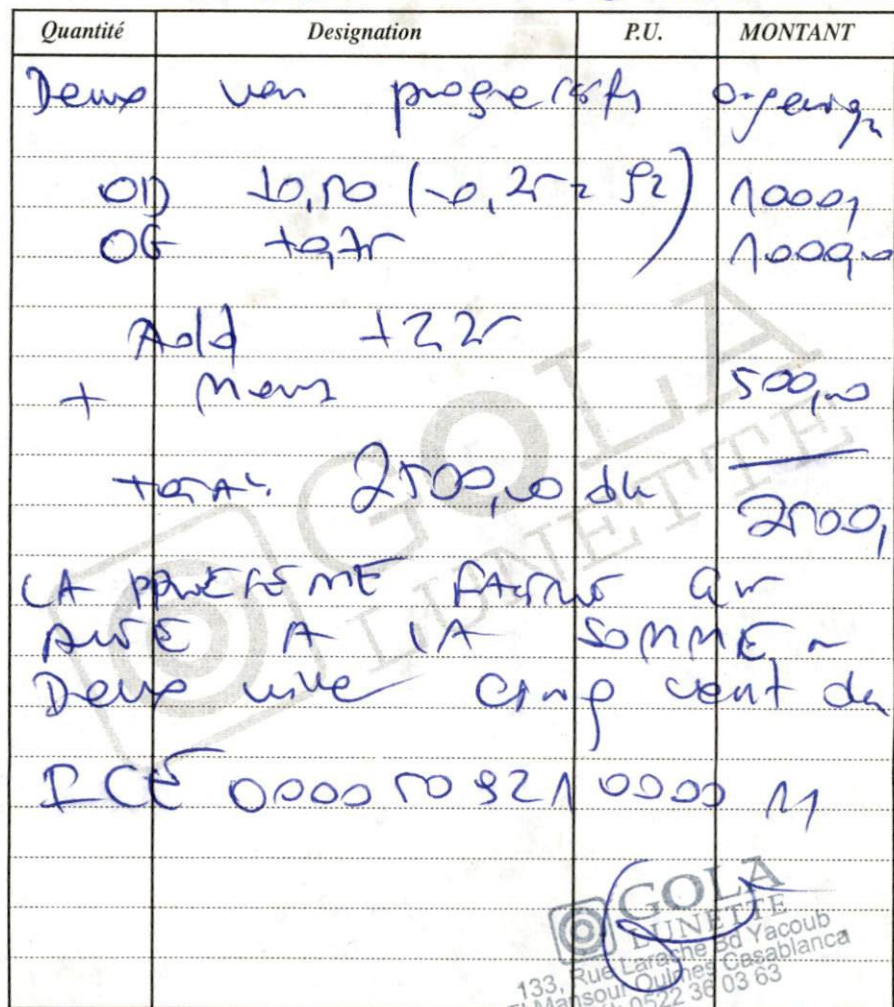 Quantité Designation P.U. MONTANT
Deux progressifs
OD +0,50 (-0,25 à 92) 1000,
OG +0,75 1000,00
Add +2,25
+ 500,00
TOTAL 2500,00 dh 2500,
LA FACTURE
A LA SOMME
Deux mille cinq cent dh
ICE 000050921000011
GOLA
LUNETTE
GOLA
LUNETTE
133, Rue Larache Bd Yacoub
El Mansour Quilmes Casablanca
0522 36 03 63